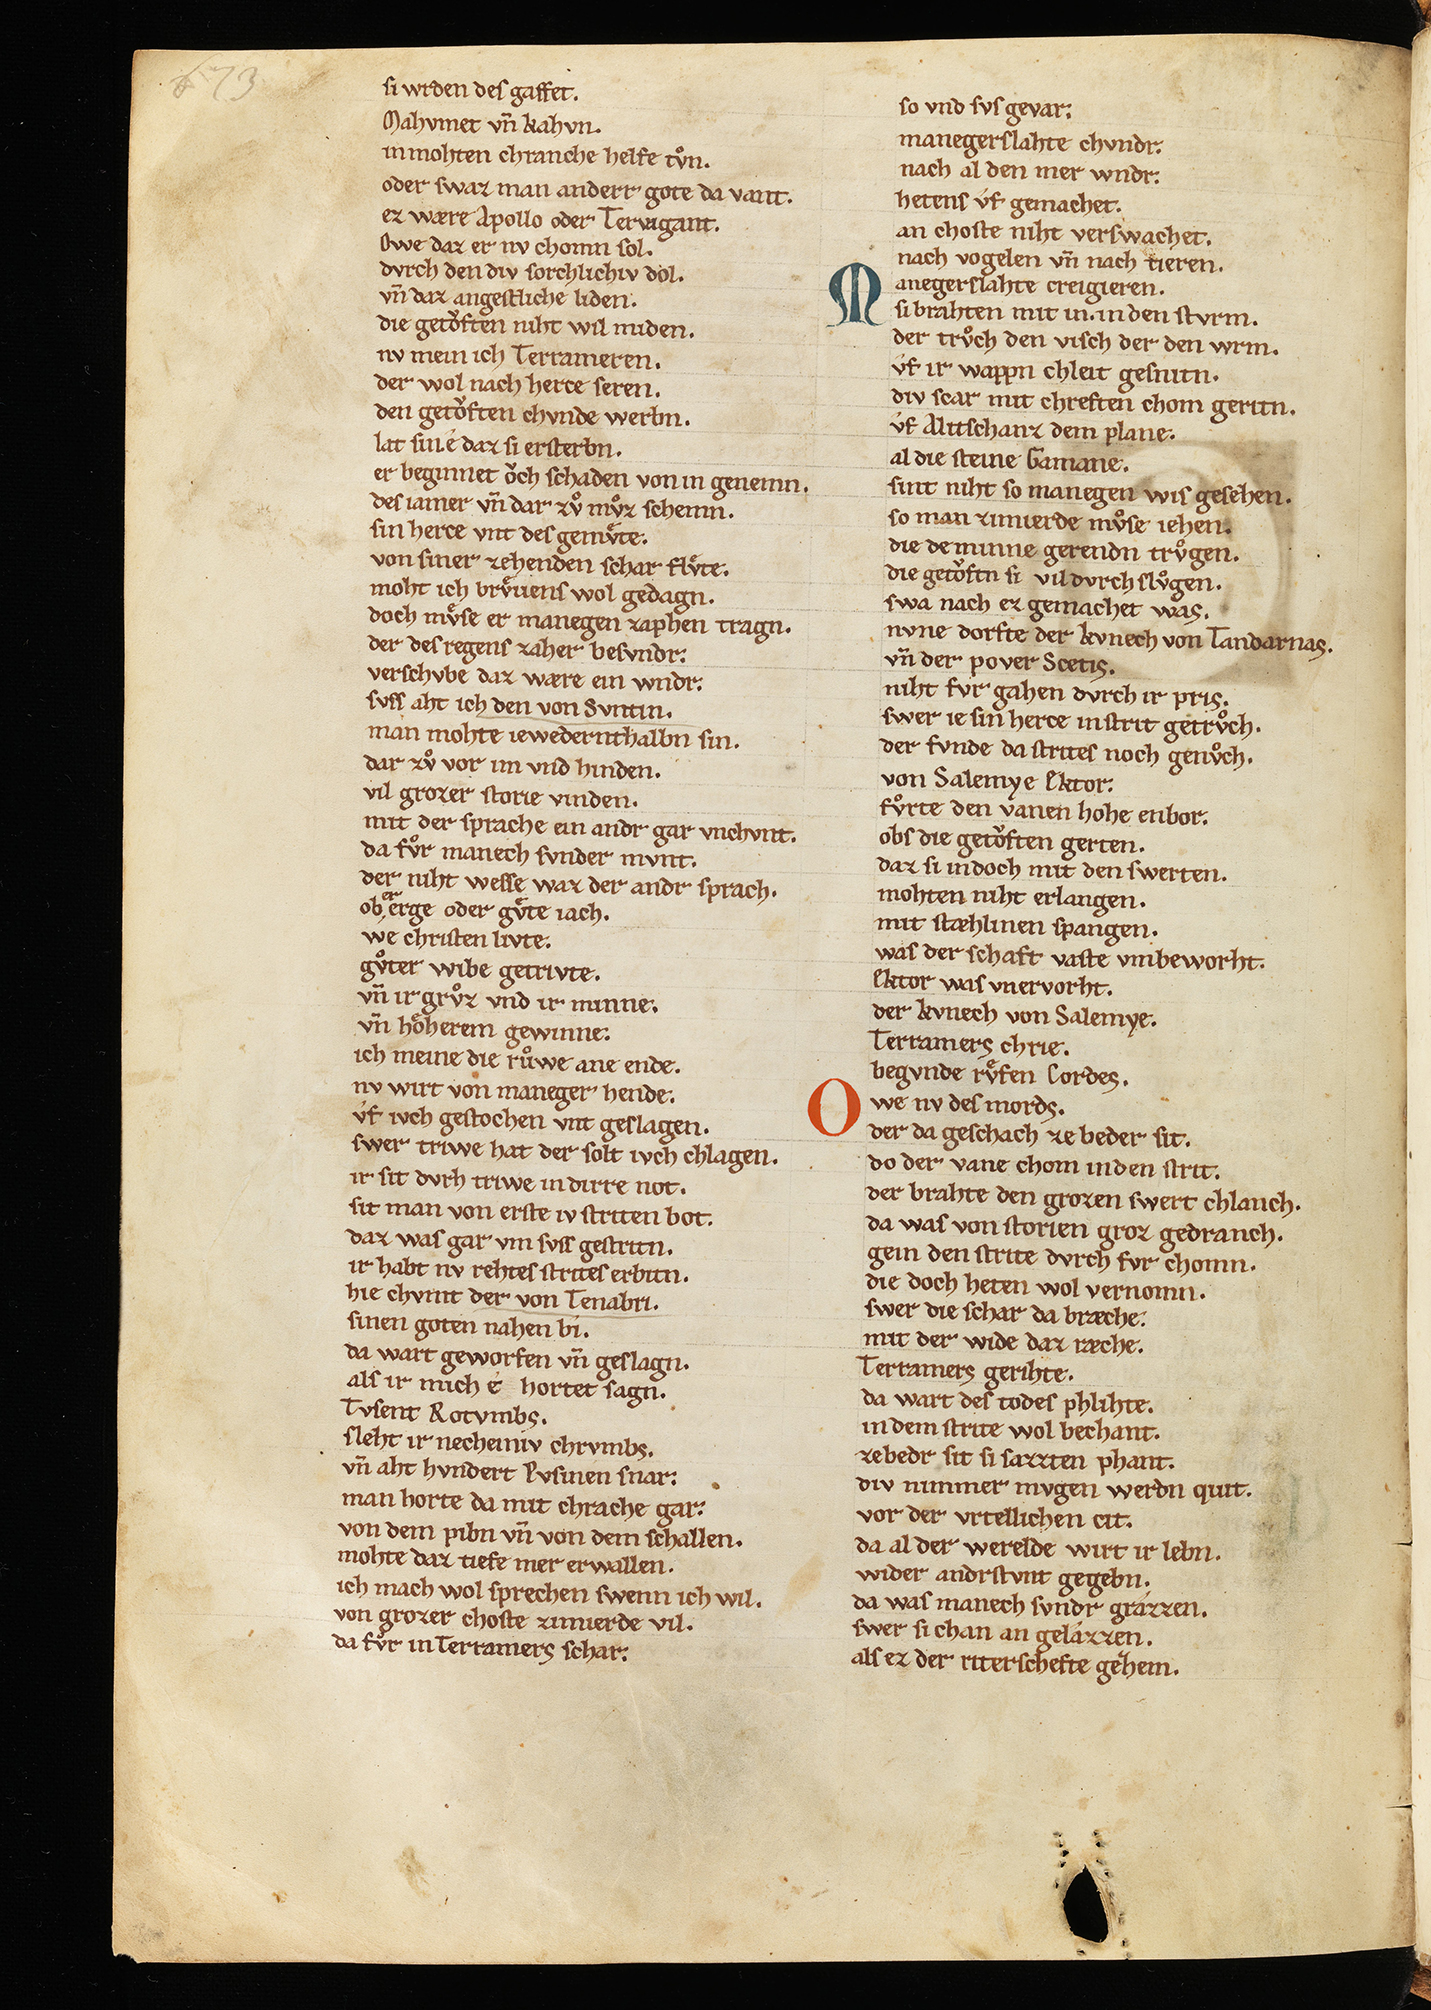 673
si wrden des gaffet.
Mahvmet vn̄ kahvn.
in mohten chranche helfe tvͦn.
oder swaz man anderr gote da vant.
ez wære Apollo oder Tervigant.
Owe daz er nv chomn sol.
dvrch den div sorchlichiv dol.
vn̄ daz angestliche liden.
die getoͮften niht wil miden.
nv mein ich Terrameren.
der wol nach herce seren.
den getoͮften chvnde werbn.
lat sin e daz si ersterbn.
er beginnet oͮch schaden von in genemn.
des iamer vn̄ dar zvͦ mvͦz schemn.
sin herce vnt des gemvͤte.
von siner zehenden schar flvͤte.
moht ich brvͤuens wol gedagn.
doch mvͤse er manegen zaphen tragn.
der des regens zaher besvndr.
verschvbe daz wære ein wndr.
svss aht ich den von Svntin.
man mohte iewedernthalbn sin.
dar zvͦ vor im vnd hinden.
vil grozer storie vinden.
mit der sprache ein andr gar vnchvnt.
da fvͦr manech svnder mvnt.
der niht wesse waz der andr sprach.
ob er arge oder gvͤte iach.
we christen livte.
gvͦter wibe getrivte.
vn̄ ir grvͦz vnd ir minne.
vn̄ hoͤherem gewinne.
ich meine die rvͦwe ane ende.
nv wirt von maneger hende.
vf ivch gestochen vnt geslagen.
swer triwe hat der solt ivch chlagen.
ir sit dvrh triwe in dirre not.
sit man von erste iv striten bot.
daz was gar vm svss gestritn.
ir habt nv rehtes strites erbitn.
hie chvmt der von Tenabri.
sinen goten nahen bi.
da wart geworfen vn̄ geslagn.
als ir mich e hortet sagn.
Tvsent Rotvmbs.
sleht ir necheiniv chrvmbs.
vn̄ aht hvndert Pvsinen snar.
man horte da mit chrache gar.
von dem pibn vn̄ von dem schallen.
mohte daz tiefe mer erwallen.
ich mach wol sprechen swenn ich wil.
von grozer choste zimierde vil.
da fvͦr in Terramers schar.
so vnd svs gevar.
manegerslahte chvndr.
nach al den mer wndr.
hetens vf gemachet.
an choste niht verswachet.
nach vogelen vn̄ nach tieren.
Manegerslahte creigieren.
si brahten mit in. in den stvrm.
der trvͦch den visch der den wrm.
vf ir wappn chleit gesnitn.
div scar mit chreften chom geritn.
vf Alitschanz dem plane.
al die steine Gamane.
sint niht so manegen wis gesehen.
so man zimierde mvͦse iehen.
die de minne gerendn trvͦgen.
die getoͮftn si vil dvrch slvͦgen.
swa nach ez gemachet was.
nvne dorfte der kvnech von Tandarnas.
vn̄ der pover Scetis.
niht fvr gahen dvrch ir pris.
swer ie sin herce in strit getrvͦch.
der fvnde da strites noch genvͦch.
von Salemye Ektor.
fvͦrte den vanen hohe enbor.
obs die getoͮften gerten.
daz si in doch mit den swerten.
mohten niht erlangen.
mit stæhlinen spangen.
was der schaft vaste vmbeworht.
Ektor was vnervorht.
der kvnech von Salemye.
Terramers chrie.
begvnde rvͤfen Cordes.
Owe nv des mords.
der da geschach ze beder sit.
do der vane chom in den strit.
der brahte den grozen swert chlanch.
da was von storien groz gedranch.
gein den strite dvrch fvr chomn.
die doch heten wol vernomn.
swer die schar da bræche.
mit der wide daz ræche.
Terramers gerihte.
da wart des todes phlihte.
in dem strite wol bechant.
zebedr sit si sazzten phant.
div nimmer mvgen werdn quit.
vor der vrteillichen cit.
da al der werelde wirt ir lebn.
wider andrstvnt gegebn.
da was manech svndr grazzen.
swer si chan an gelazzen.
als ez der riterschefte gehem.